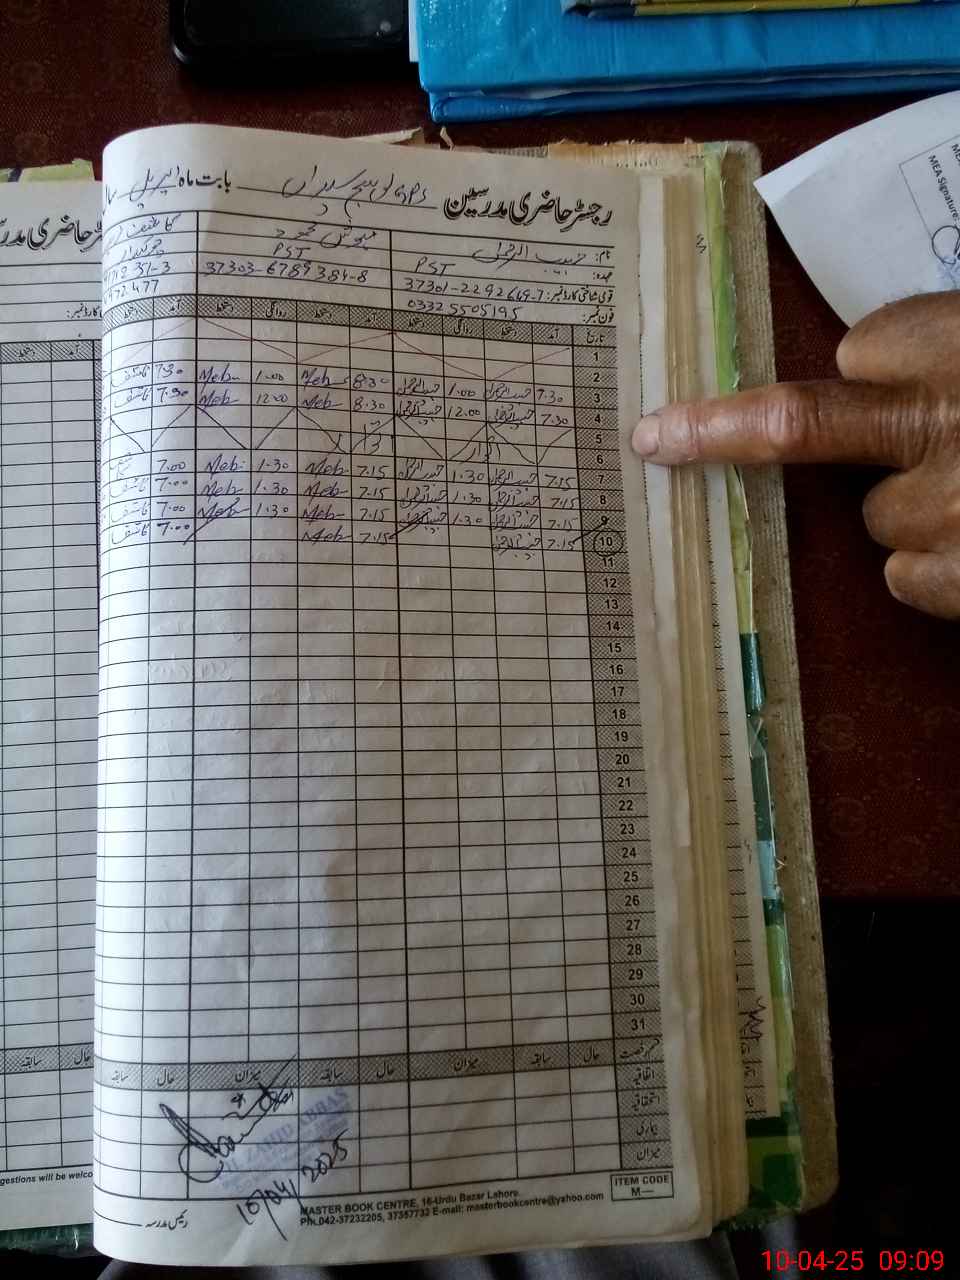 رجسٹر حاضری مدرسین GPS بابت ماہ اپریل
نام: حبیب الرحمٰن
عہدہ: PST PST
قومی شناختی کارڈ نمبر: 37301-2292649-7 37303-6789384-8
فون نمبر: 03325505195
تاریخ آمد دستخط روانگی دستخط آمد دستخط روانگی دستخط آمد دستخط
1
2
3 7.30 حبیب الرحمٰن 1.00 حبیب الرحمٰن 8.30 Meh 1.00 Meh 7.30 کاشف
4 7.30 حبیب الرحمٰن 12.00 حبیب الرحمٰن 8.30 Meh 12.00 Meh 7.30 کاشف
5
6 اتوار اتوار
7 7.15 حبیب الرحمٰن 1.30 حبیب الرحمٰن 7.15 Meh 1.30 Meh 7.00
8 7.15 حبیب الرحمٰن 1.30 حبیب الرحمٰن 7.15 Meh 1.30 Meh 7.00 کاشف
9 7.15 حبیب الرحمٰن 1.30 حبیب الرحمٰن 7.15 Meh 1.30 Meh 7.00 کاشف
10 7.15 حبیب الرحمٰن 7.15 Meh 7.00 کاشف
11
12
13
14
15
16
17
18
19
20
21
22
23
24
25
26
27
28
29
30
31
قسم رخصت حال سابقہ میزان حال سابقہ میزان حال سابقہ
اتفاقیہ
استحقاقیہ
بیماری
میزان
ZAHID ABBAS
10/04/2025
رئیس مدرسہ
MASTER BOOK CENTRE, 16-Urdu Bazar Lahore.
Ph.042-37232205, 37357732 E-mail: masterbookcentre@yahoo.com
ITEM CODE
M—
gestions will be welco
MEA Signature:
10-04-25 09:09